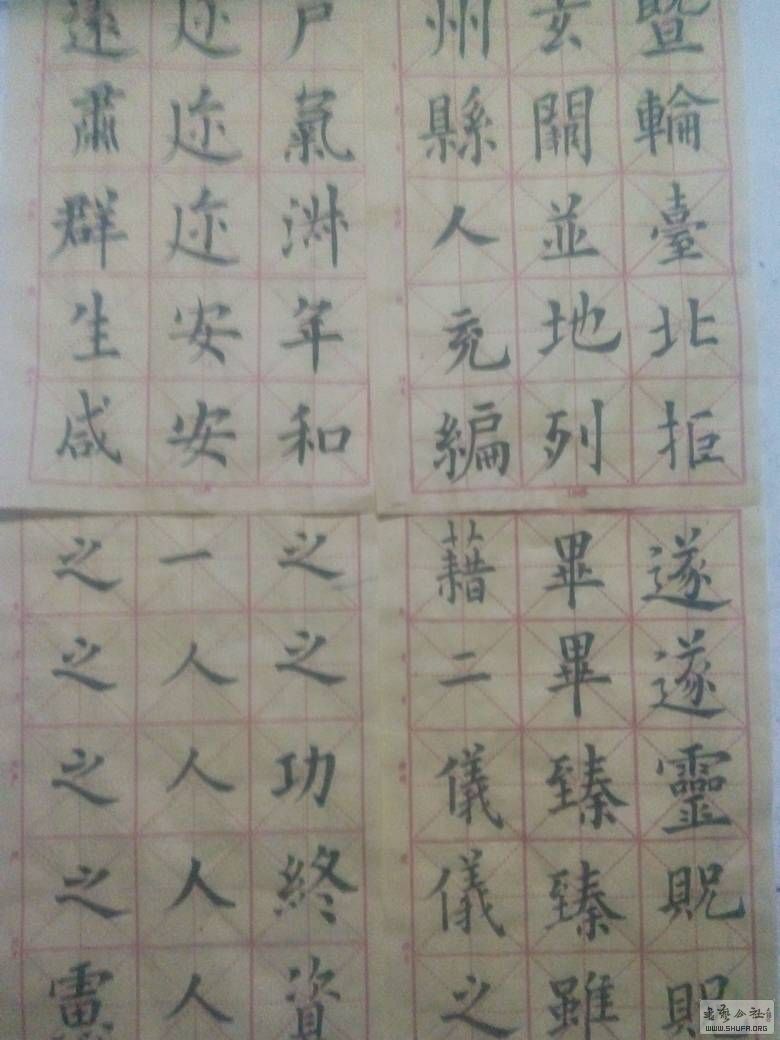 暨輪臺北拒
玄闕並地列
州縣人充編
戶氣淑年和
迩迩迩安安
遠肅群生咸
遂遂靈貺貺
畢畢臻臻雖
藉二儀儀之
之之功終資
一人人人人
之之之之慮
WWW.SHUFA.ORG